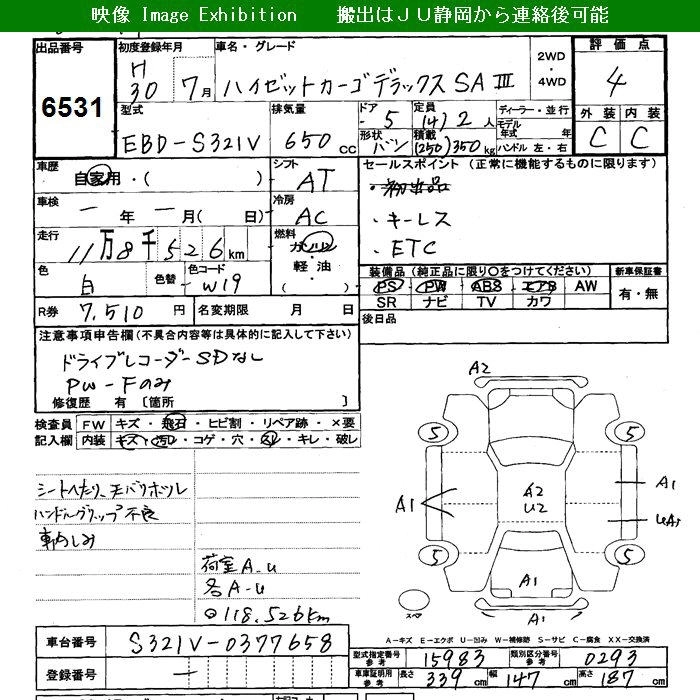 映像 Image Exhibition 搬出はJU静岡から連絡後可能
出品番号 初度登録年月 車名・グレード 2WD ・ 4WD 評価点
6531 H30 7月 ハイゼットカーゴデラックスSAⅢ 4
型式 排気量 ドア 定員 ディーラー・並行 外装 内装
EBD-S321V 650cc 5 (4)2人 モデル年式 年
形状 バン 積載 (250)350kg ハンドル 左・右 C C
車歴 シフト セールスポイント (正常に機能するものに限ります)
自家用・( ) AT ・初出品
車検 ー年ー月(日) 冷房 AC ・キーレス
走行 燃料 ・ETC
11万8千526km ガソリン・軽油・
色 白 色替 色コード W19
装備品 (純正品に限り○をつけてください) 新車保証書
PS PW ABS エアB AW 有・無
SR ナビ TV カワ
R券 7,510円 名変期限 月 日 後日品
注意事項申告欄(不具合内容等は具体的に記入して下さい)
ドライブレコーダーSDなし
PW-Fのみ
修復歴 有 〔箇所 〕
検査員記入欄 FW キズ・飛石・ヒビ割・リペア跡・×要
内装 キズ・汚れ・コゲ・穴・スレ・キレ・破レ
シートへたり、モバリホツレ
ハンドルグリップ不良
荷室A-U
各A-U
◎118,526km
A2
5 5
A1 A2 U2 A1
UA1
5 5
A1
スペア A1
A-キズ E-エクボ U-凹み W-補修跡 S-サビ C-腐食 XX-交換済
車台番号 S321V-0377658
型式指定番号 参考 15983 類別区分番号 参考 0293
登録番号 ー
車庫証明用 参考 長さ 339cm 幅 147cm 高さ 187cm